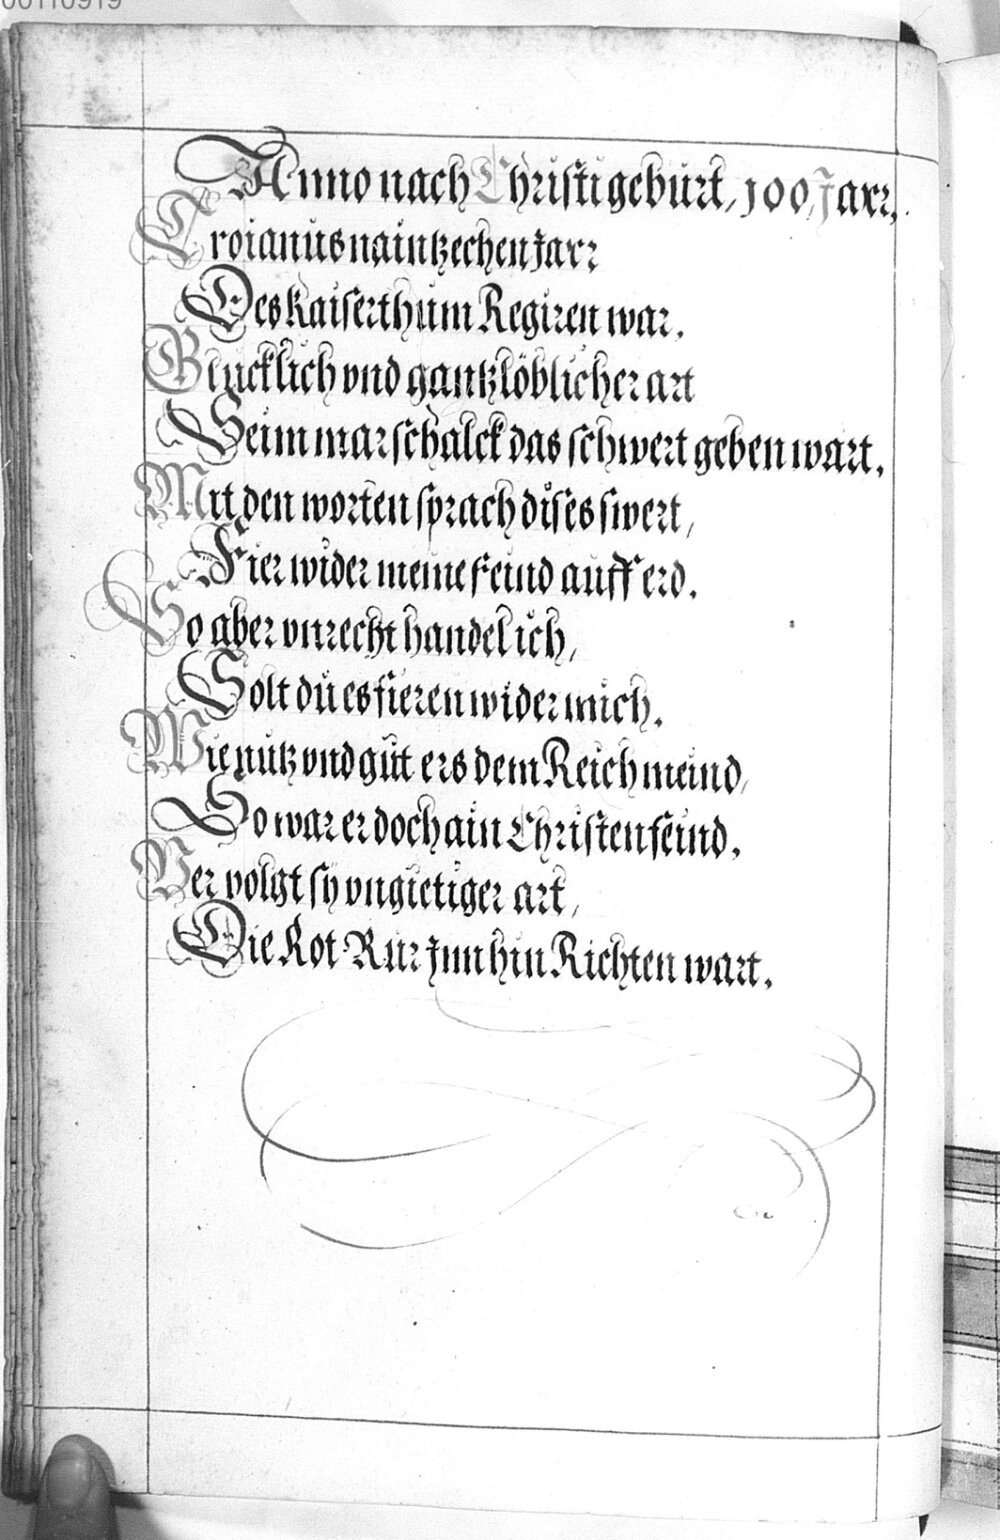 00110919
Anno nach Christi geburt, 100, Jarr,
Troianus naintzechen Jarr
Des kaiserthum Regiren war.
Glücklich vnd gantz löblicher art
Seim marschalck das schwert geben wart.
Mit den worten sprach dises swert,
Fier wider meine feind auff erd.
So aber vnrecht handel ich,
Solt du es fieren wider mich.
Wie nutz vnd gut ers dem Reich meind,
So war er doch ain Christen feind.
Ver volgt sy vngietiger art,
Die Rot Rur Jnn hin Richten wart.